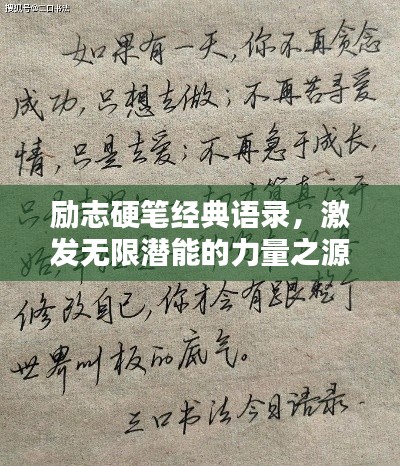 搜狐号@三口书法
如果有一天，你不再贪念
成功，只想去做；不再苦寻爱
情，只是去爱；不再急于成长，
开
励志硬笔经典语录，激
发无限潜能的力量之源
修改自己，你才会有跟整个
世界叫板的底气。
三口书法今日语录.